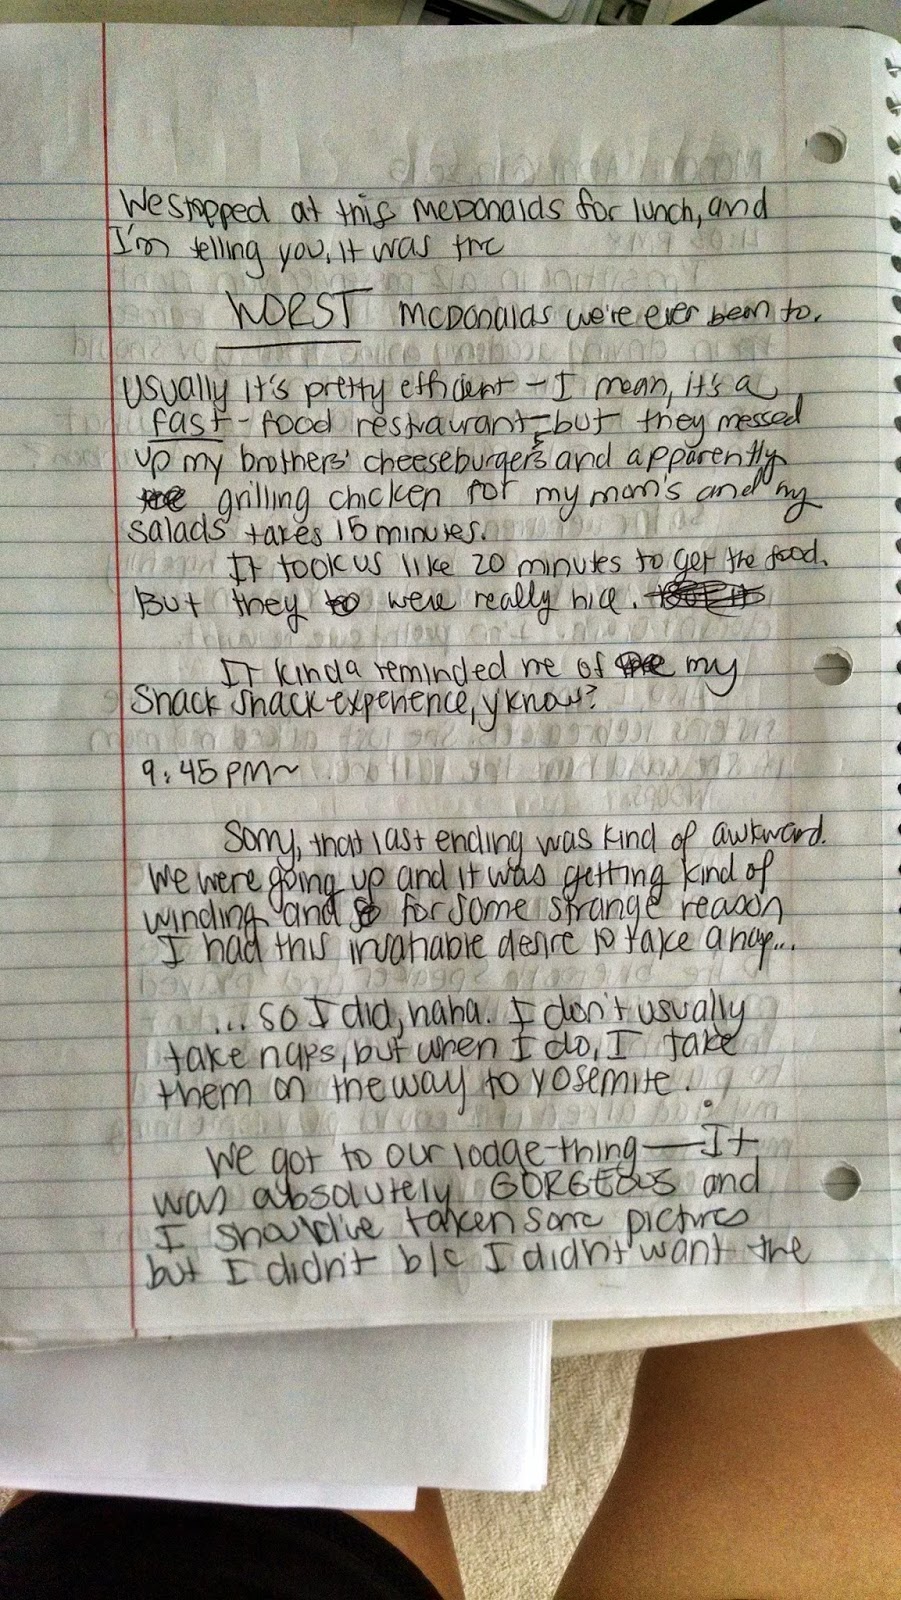 We stopped at this McDonalds for lunch, and
I'm telling you, it was the
WORST McDonalds we've ever been to.
Usually it's pretty efficient - I mean, it's a
fast-food restaurant - but they messed
up my brothers' cheeseburgers and apparently
grilling chicken for my mom's and my
salads takes 15 minutes.
It took us like 20 minutes to get the food.
But they were really nice.
It kinda reminded me of my
Snack Shack experience, y'know?
9:45 PM~
Sorry, that last ending was kind of awkward.
We were going up and it was getting kind of
winding and for some strange reason
I had this insatiable desire to take a nap...
...so I did, haha. I don't usually
take naps, but when I do, I take
them on the way to Yosemite.
We got to our lodge-thing — It
was absolutely GORGEOUS and
I should've taken some pictures
but I didn't b/c I didn't want the